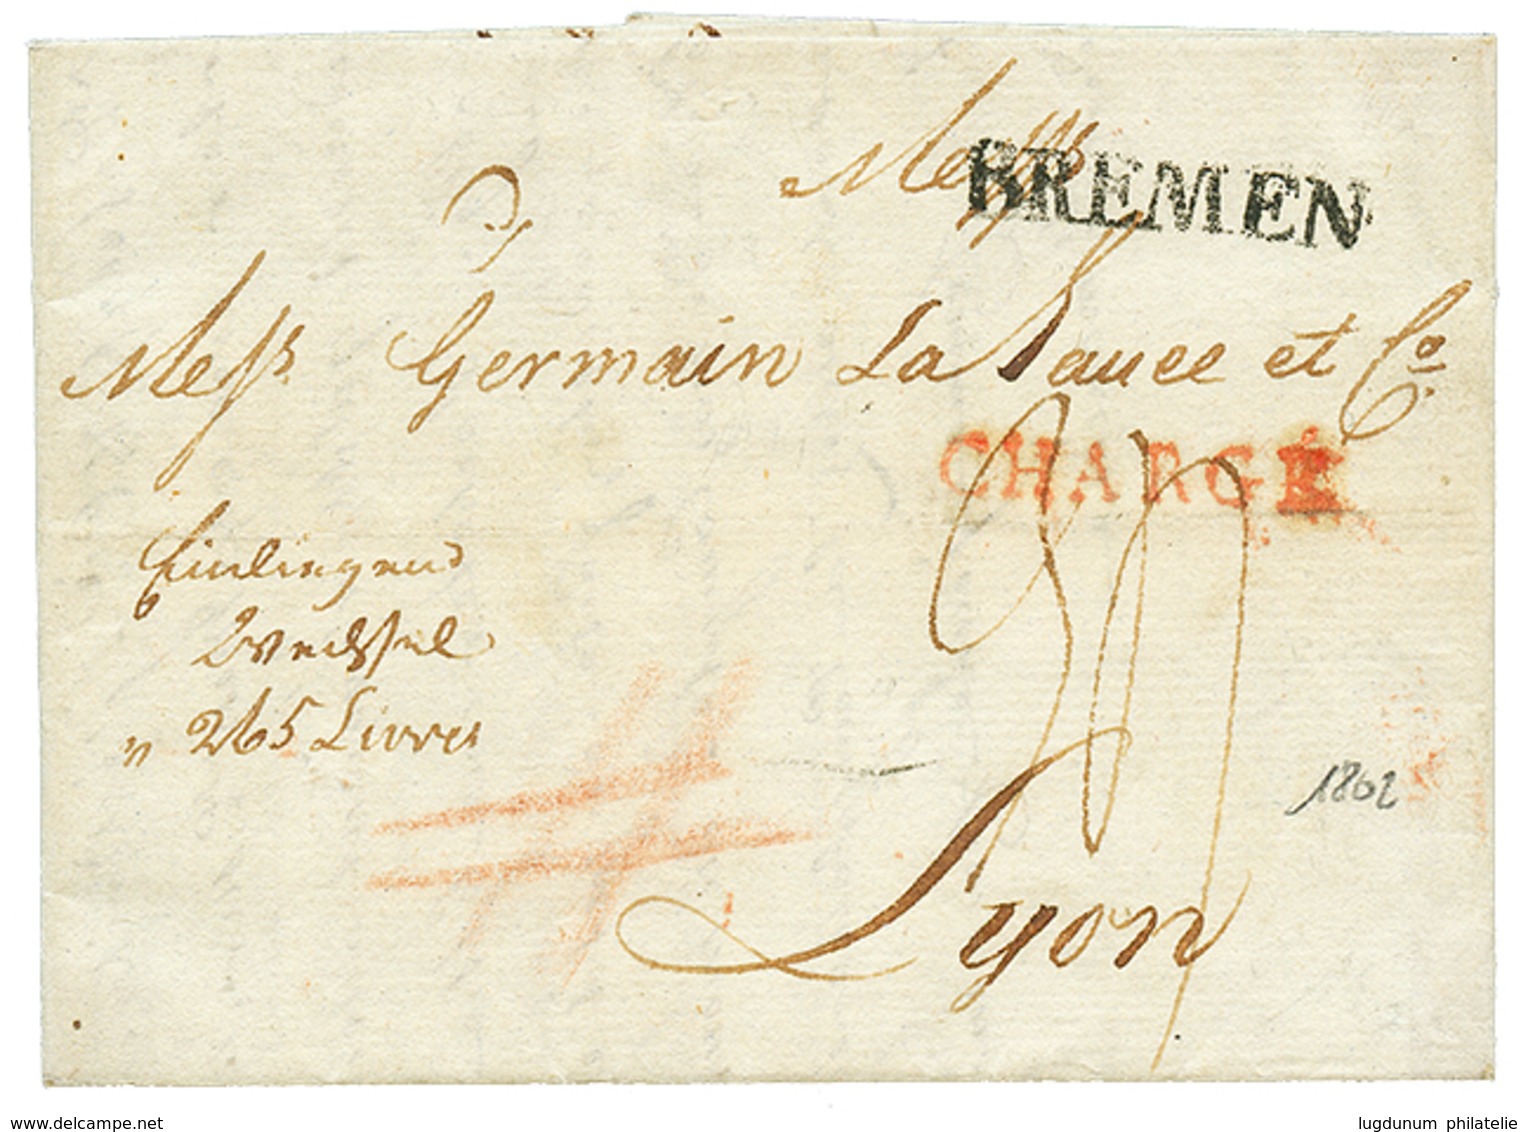 Messrs
BREMEN
Messrs Germain La Sauce et Co.
CHARGÉ
Einliegend
Wechsel
" 265 Livres
1802
Lyon
www.delcampe.net
lugdunum philatelie